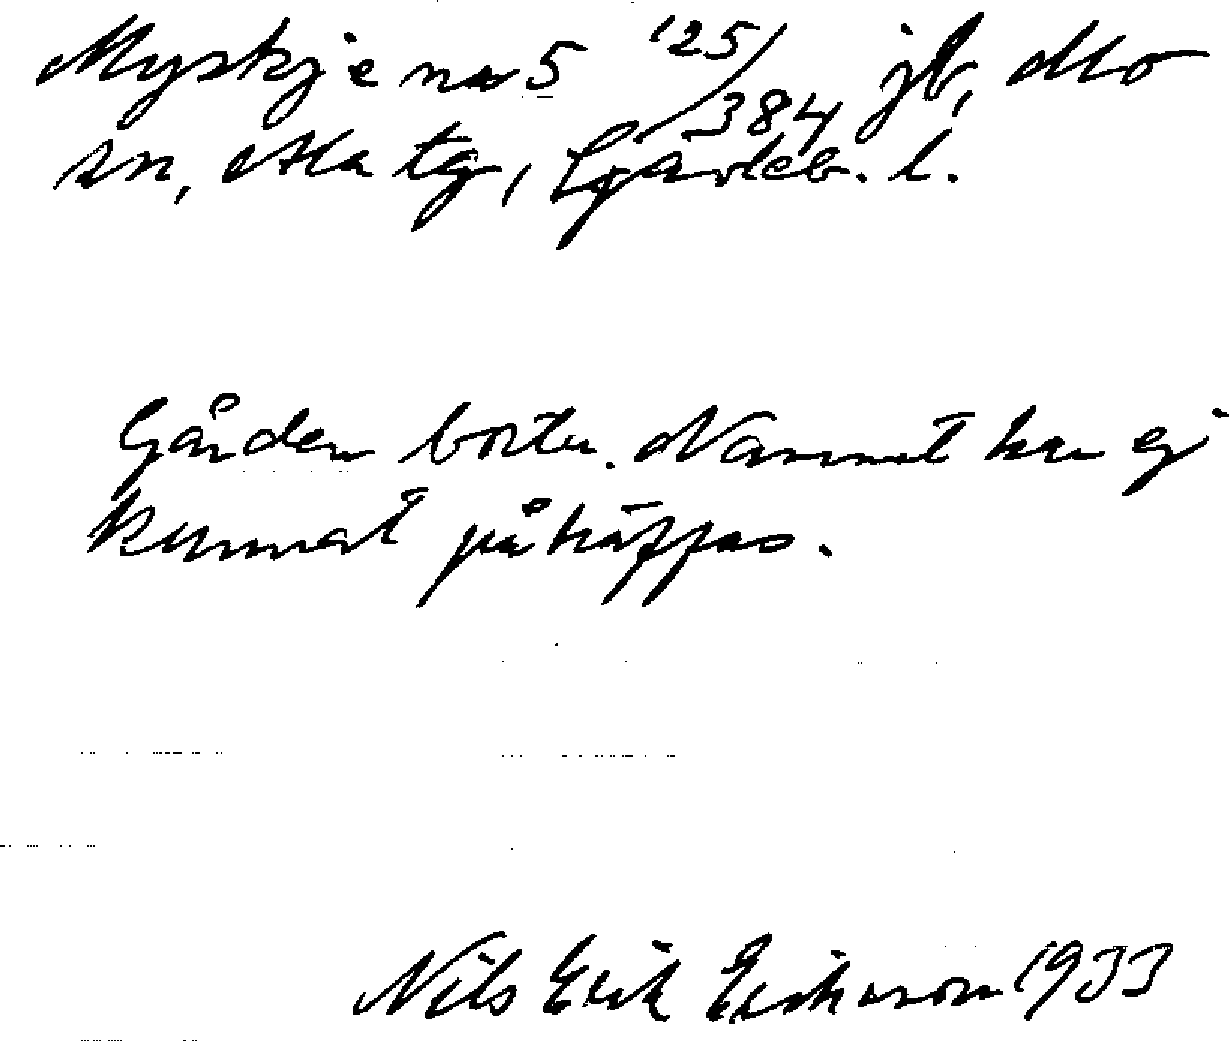 Myskje nr 5 125/384 jb, Mo
sn, Ala tg, Gävleb. l.
Gården borta. Namnet har ej
kunnat påträffas.
Nils Erik Eriksson 1933